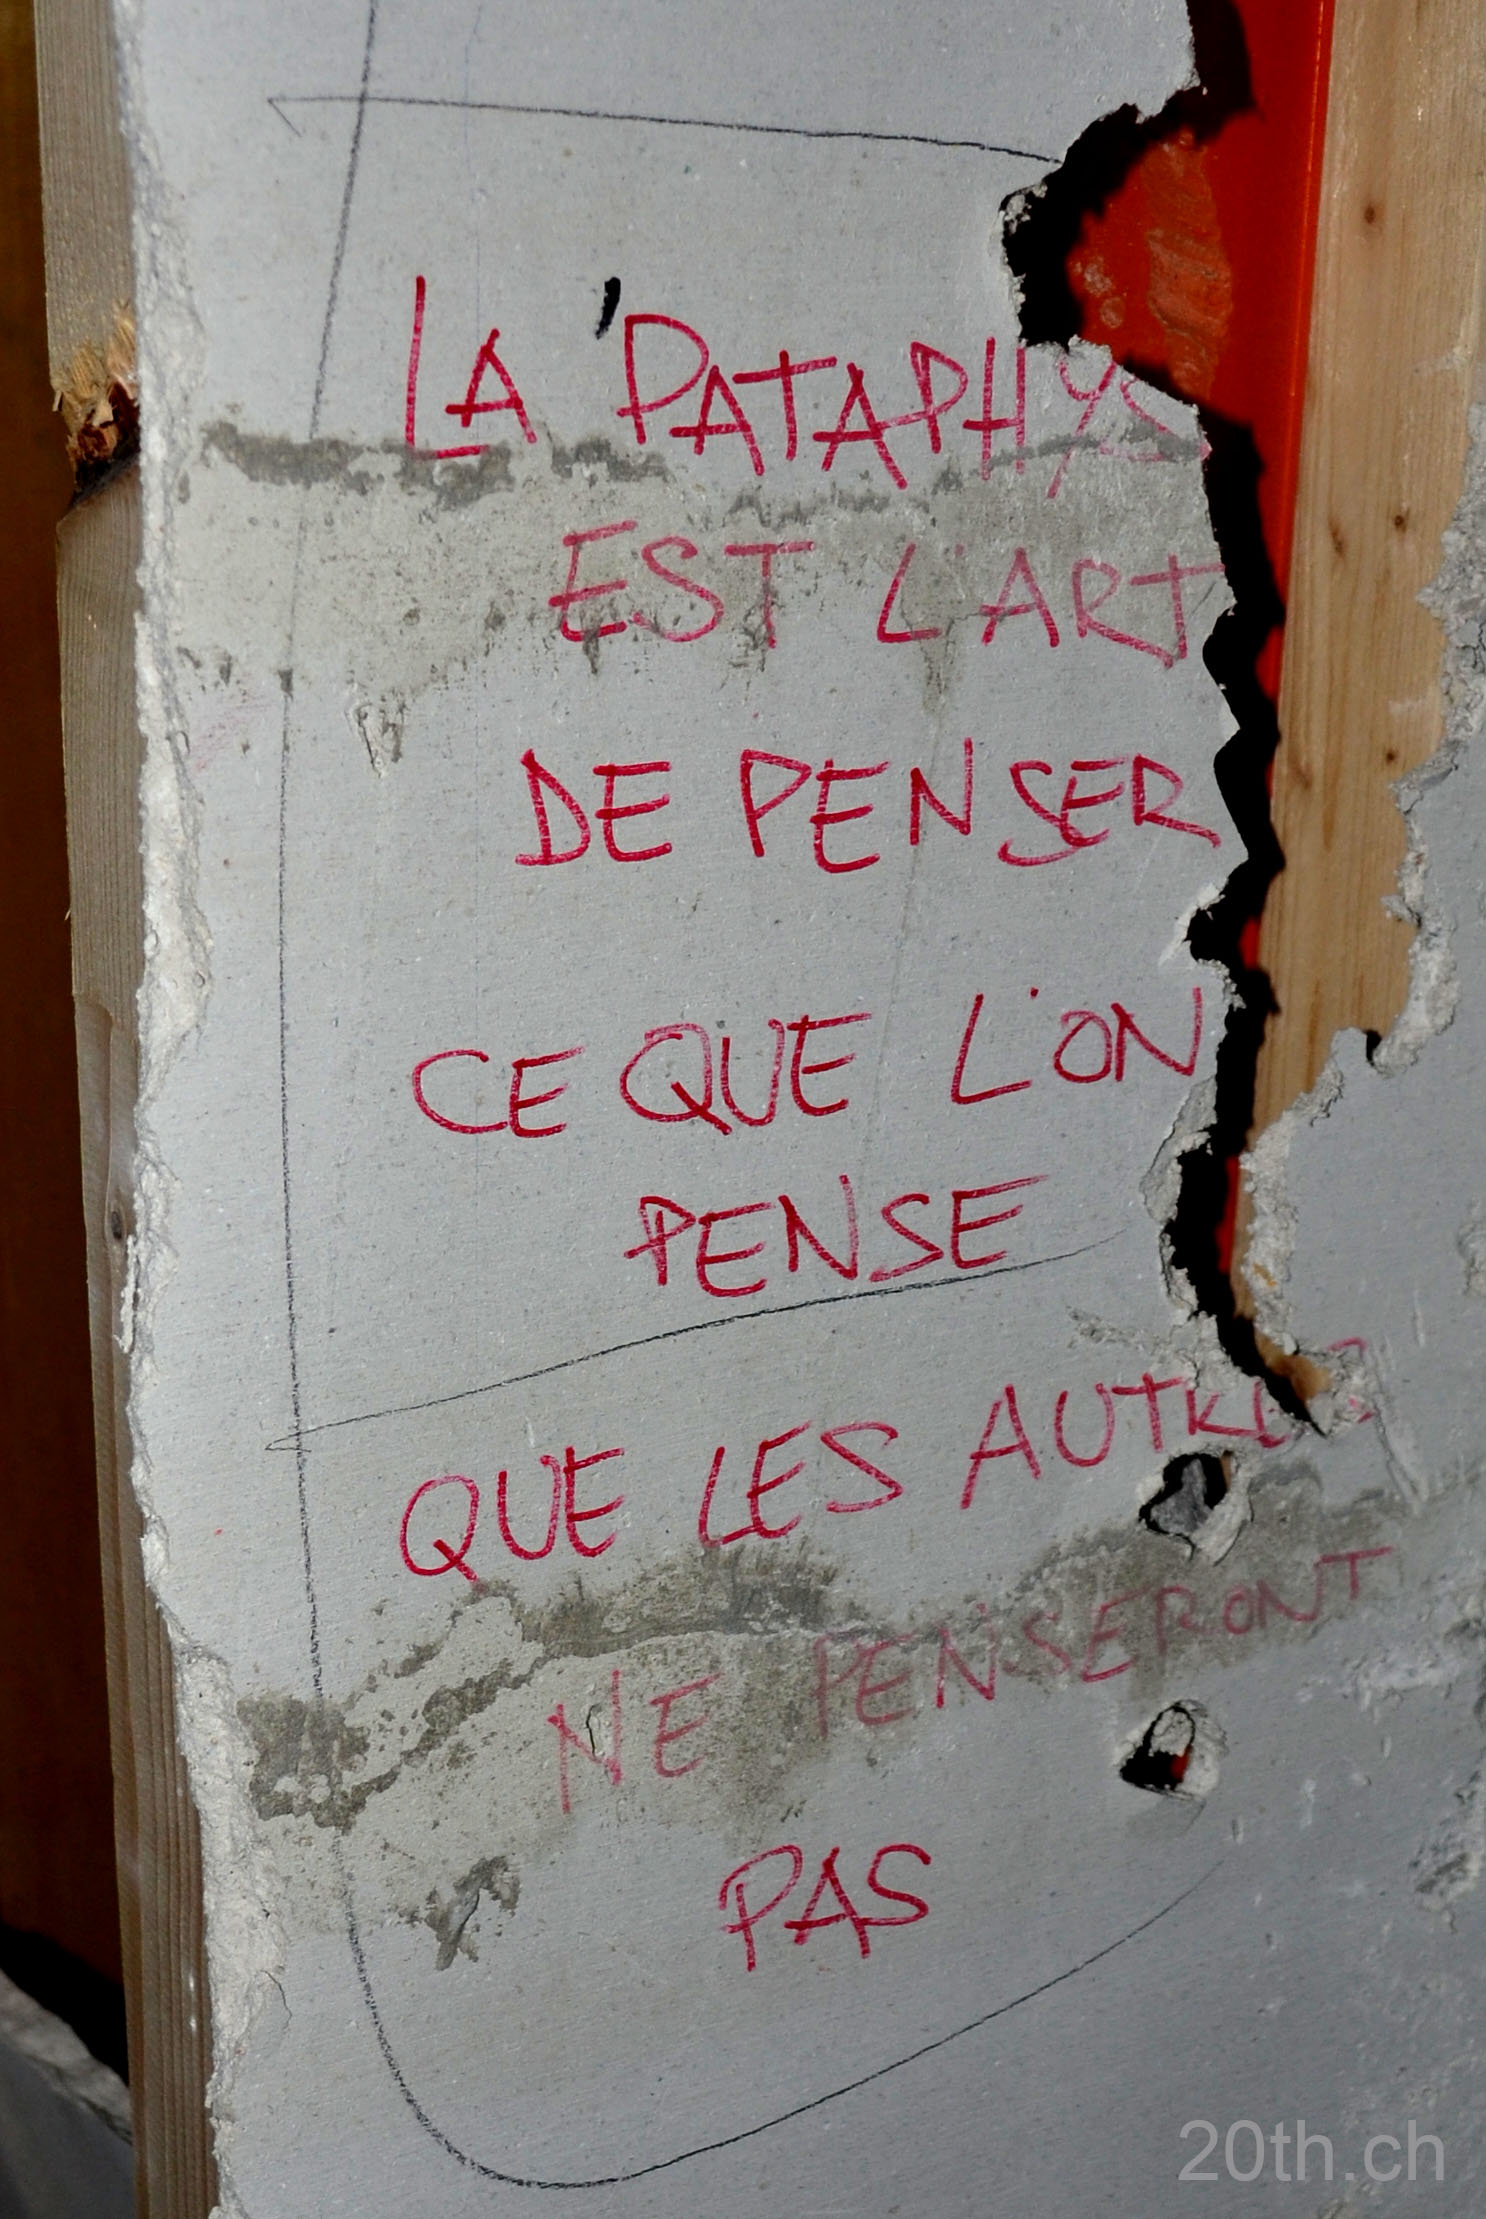 LA 'PATAPHYS
EST L'ART
DE PENSER
CE QUE L'ON
PENSE
QUE LES AUTRES
NE PENSERONT
PAS
20th.ch